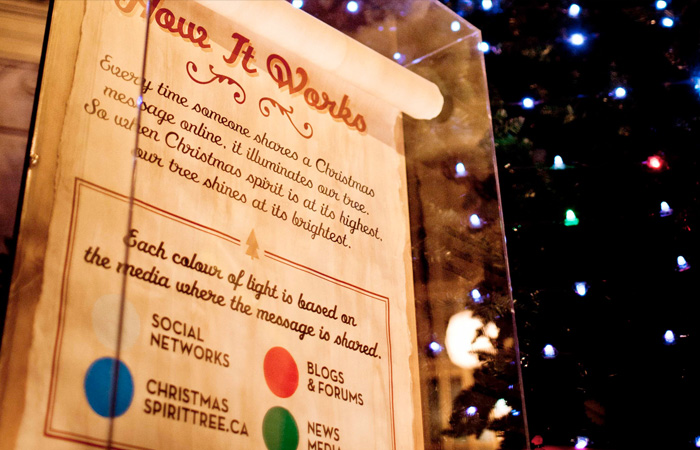 How It Works
Every time someone shares a Christmas
message online, it illuminates our tree.
So when Christmas spirit is at its highest,
our tree shines at its brightest.
Each colour of light is based on
the media where the message is shared.
SOCIAL
NETWORKS
BLOGS
& FORUMS
CHRISTMAS
SPIRITTREE.CA
NEWS
MEDIA